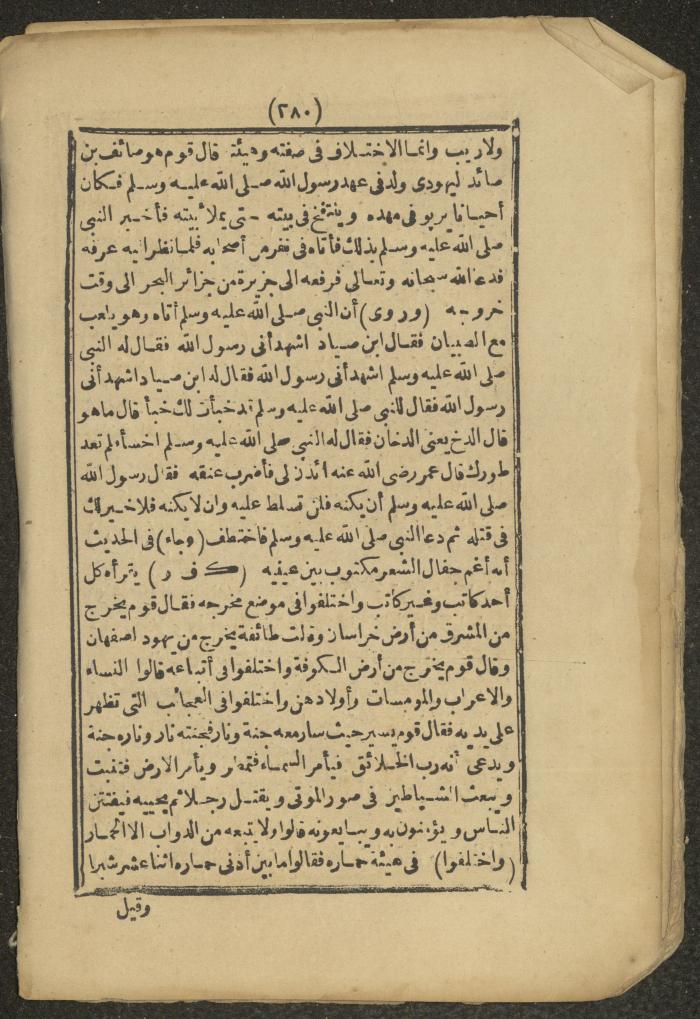 (٢٨٠)
ولاريب وانما الاختلاف فى صفته وهيئة قال قوم هو صائف بن
صائد ليهودى ولد فى عهد رسول الله صلى الله عليه وسلم فكان
أحيانا يربو فى مهده وينتفخ فى بيته حتى يملأ بيته فأخبر النبى
صلى الله عليه وسلم بذلك فأتاه فى نفر من أصحابه فلما نظر اليه عرفه
فدعا الله سبحانه وتعالى فرفعه الى جزيرة من جزائر البحر الى وقت
خروجه (وروى) أن النبى صلى الله عليه وسلم أتاه وهو يلعب
مع الصبيان فقال ابن صياد اشهد أنى رسول الله فقال له النبى
صلى الله عليه وسلم اشهد أنى رسول الله فقال له ابن صياد اشهد أنى
رسول الله فقال للنبى صلى الله عليه وسلم قد خبأت لك خبأ قال ما هو
قال الدخ يعنى الدخان فقال له النبى صلى الله عليه وسلم اخسأ لم تعد
طورك قال عمر رضى الله عنه ائذن لى فأضرب عنقه فقال رسول الله
صلى الله عليه وسلم أن يكنه فلن تسلط عليه وان لا يكنه فلا خير لك
فى قتله ثم دعا النبى صلى الله عليه وسلم فاختطف (وجاء) فى الحديث
أنه أغم جفال الشعر مكتوب بين عينيه (ك ف ر) يقرأه كل
أحد كاتب وغير كاتب واختلفوا فى موضع مخرجه فقال قوم يخرج
من المشرق من أرض خراسان وقالت طائفة يخرج من يهود اصفهان
وقال قوم يخرج من أرض الكوفة واختلفوا فى أتباعه قالوا النساء
والاعراب والمومسات وأولادهن واختلفوا فى العجائب التى تظهر
على يديه فقال قوم يسير حيث سار معه جنة ونار فجنته نار وناره جنة
ويدعى أنه رب الخلائق فيأمر السماء فتمطر ويأمر الارض فتنبت
ويبعث الشياطين فى صور الموتى ويقتل رجلا ثم يحييه فيفتتن
الناس ويؤمنون به ويبايعونه قالوا ولا يتبعه من الدواب الا الحمار
(واختلفوا) فى هيئة حماره فقالوا ما بين أذنى حماره اثنا عشر شبرا
وقيل